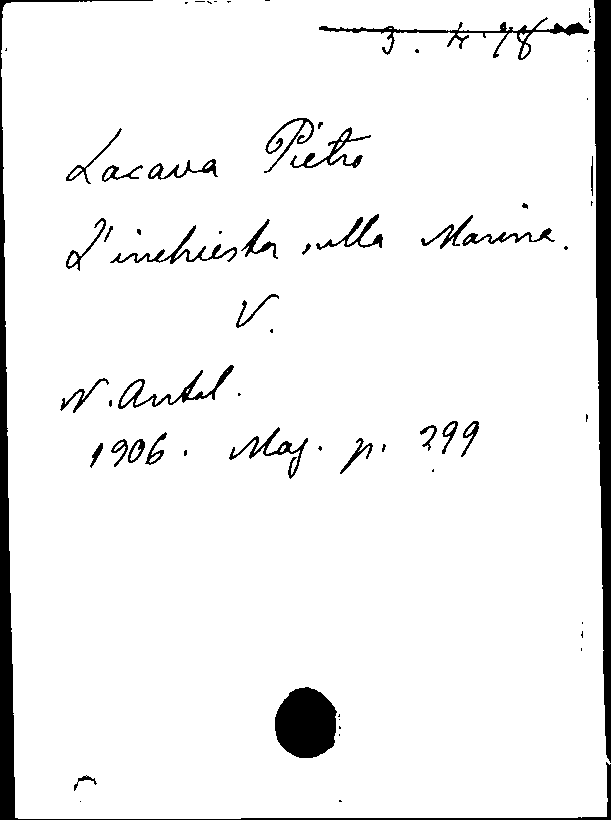 3. 4. 78
Lacava Pietro
L'inchiesta sulla Marina.
V.
N. Antol.
1906. Mag. p. 299